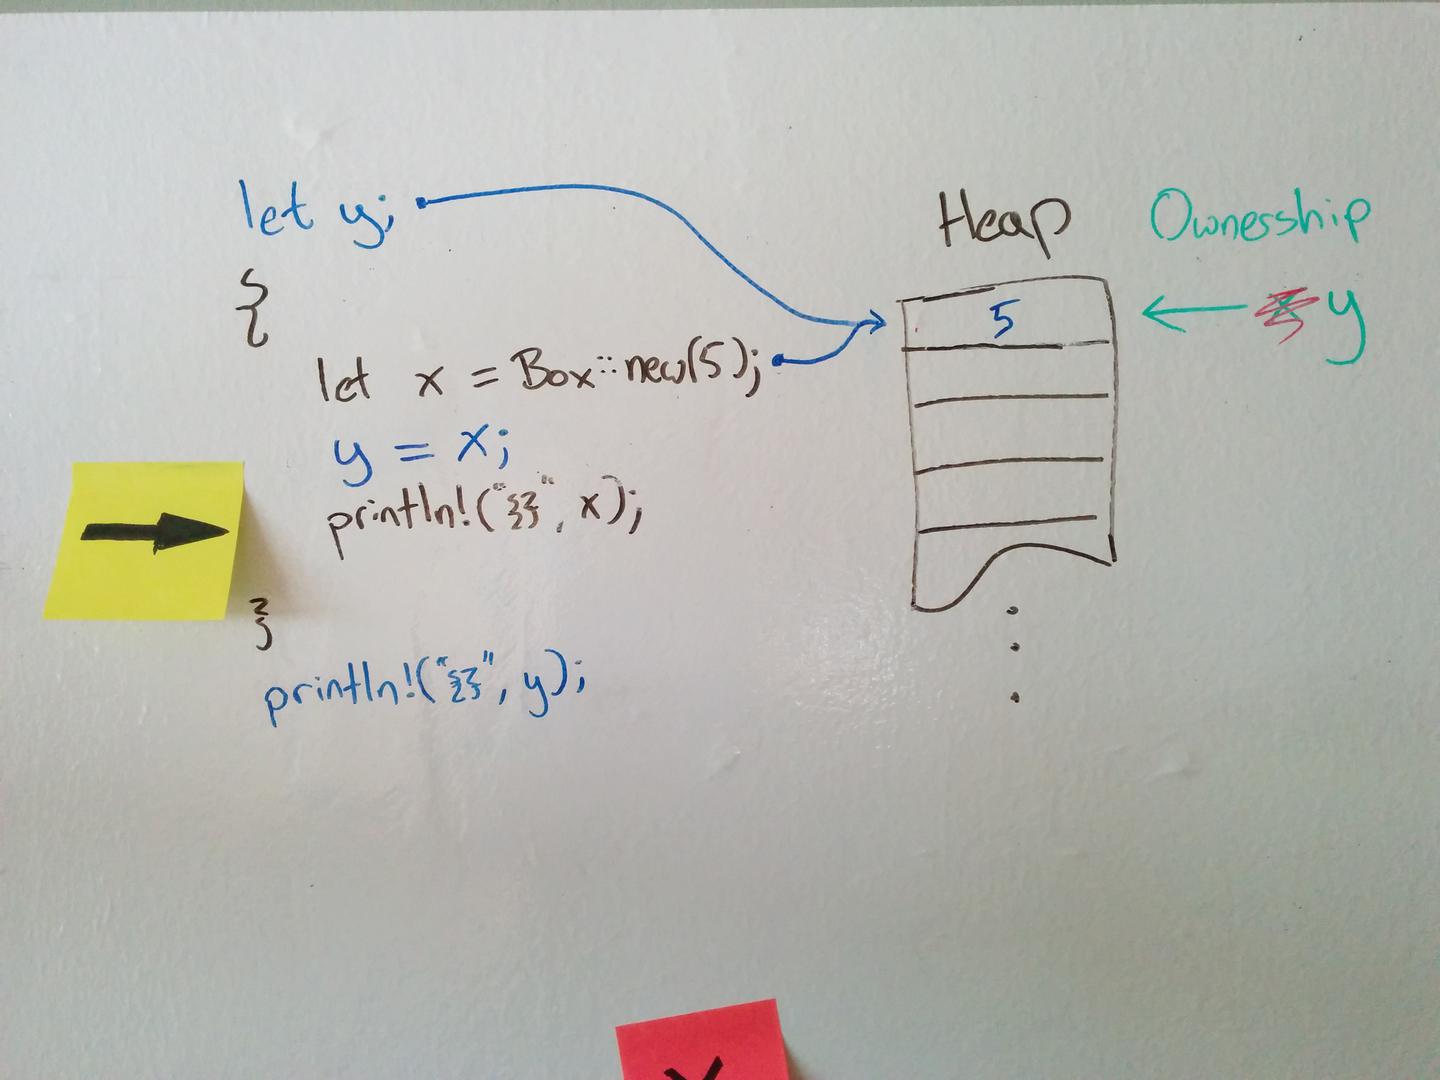 let y;
{
let x = Box::new(5);
y = x;
println!("{}", x);
}
println!("{}", y);
Heap
5
Ownership
y